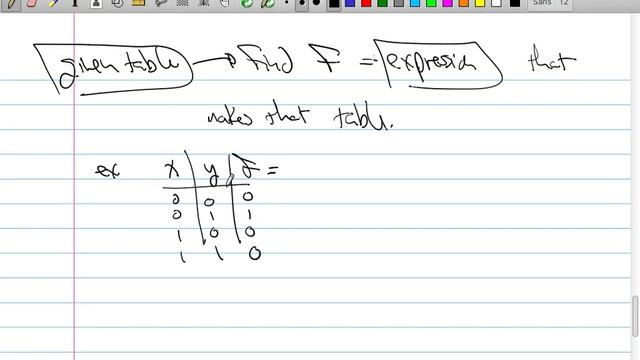 given table → Find F = expression that
makes that table.
ex x y F =
0 0 0
0 1 1
1 0 0
1 1 0
Sans 12